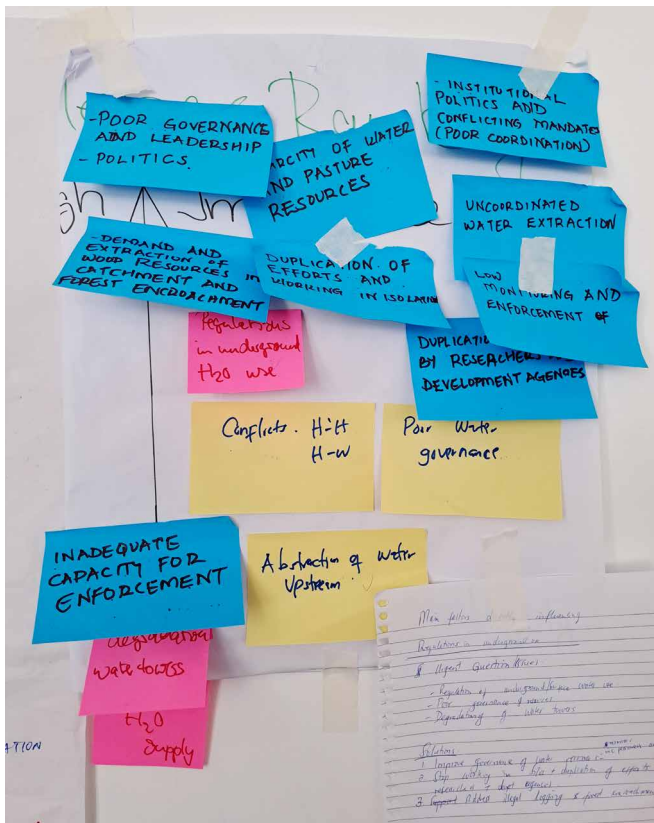 -POOR GOVERNANCE
AND LEADERSHIP
- POLITICS.
RCITY OF WATER
ND PASTURE
RESOURCES
- INSTITUTIONAL
POLITICS AND
CONFLICTING MANDATES
(POOR COORDINATION)
UNCOORDINATED
WATER EXTRACTION
-DEMAND AND
EXTRACTION OF
WOOD RESOURCES IN
CATCHMENT AND
FOREST ENCROACHMENT
DUPLICATION OF
EFFORTS AND
WORKING IN ISOLATION
LOW
MONITORING AND
ENFORCEMENT OF
Regulations
in underground
H2O use
DUPLICATI
BY RESEACHERS
DEVELOPMENT AGENCIES
Conflicts. H-H
H-W
Poor Water
governance.
INADEQUATE
CAPACITY FOR
ENFORCEMENT
Abstraction of water
Upstream.
water towers
H2O
Supply
ATION
Main factors influencing
Regulations in underground
Urgent Question/Issues
- Regulation of underground water use
- Poor governance of
- Degradation of water towers
Solutions
1 Improve governance of
2 Stop working in silos + duplication of efforts
researchers +
3 illegal logging &